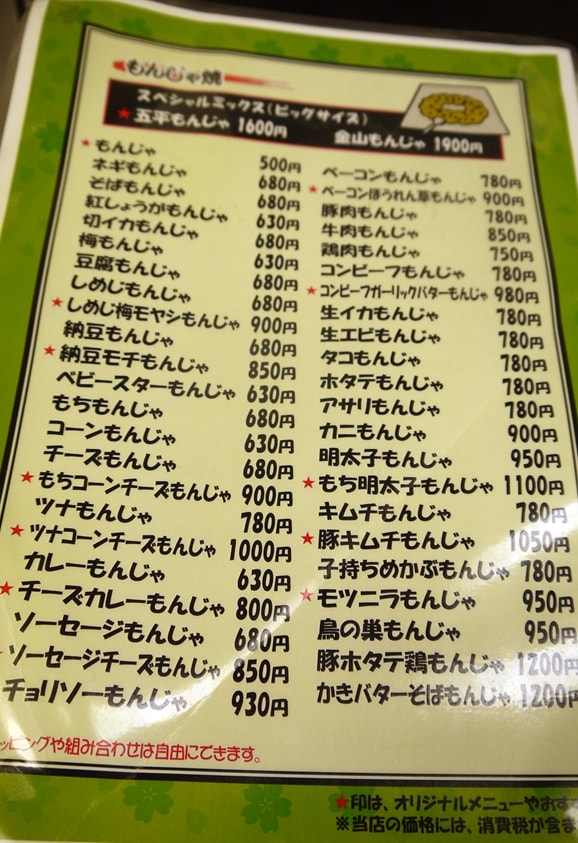 もんじゃ焼
スペシャルミックス(ビッグサイズ)
★五平もんじゃ 1600円 金山もんじゃ 1900円
★もんじゃ 500円
ネギもんじゃ 680円
そばもんじゃ 680円
紅しょうがもんじゃ 630円
切イカもんじゃ 680円
梅もんじゃ 630円
豆腐もんじゃ 680円
しめじもんじゃ 680円
★しめじ梅モヤシもんじゃ 900円
納豆もんじゃ 680円
★納豆モチもんじゃ 850円
ベビースターもんじゃ 630円
もちもんじゃ 680円
コーンもんじゃ 630円
チーズもんじゃ 680円
★もちコーンチーズもんじゃ 900円
ツナもんじゃ 780円
★ツナコーンチーズもんじゃ 1000円
カレーもんじゃ 630円
★チーズカレーもんじゃ 800円
ソーセージもんじゃ 680円
★ソーセージチーズもんじゃ 850円
チョリソーもんじゃ 930円
ベーコンもんじゃ 780円
★ベーコンほうれん草もんじゃ 900円
豚肉もんじゃ 780円
牛肉もんじゃ 850円
鶏肉もんじゃ 750円
コンビーフもんじゃ 780円
★コンビーフガーリックバターもんじゃ 980円
生イカもんじゃ 780円
生エビもんじゃ 780円
タコもんじゃ 780円
ホタテもんじゃ 780円
アサリもんじゃ 780円
カニもんじゃ 900円
明太子もんじゃ 950円
★もち明太子もんじゃ 1100円
キムチもんじゃ 780円
★豚キムチもんじゃ 1050円
子持ちめかぶもんじゃ 780円
★モツニラもんじゃ 950円
鳥の巣もんじゃ 950円
豚ホタテ鶏もんじゃ 1200円
かきバターそばもんじゃ 1200円
ッピングや組み合わせは自由にできます。
★印は、オリジナルメニューやおす
※当店の価格には、消費税が含ま